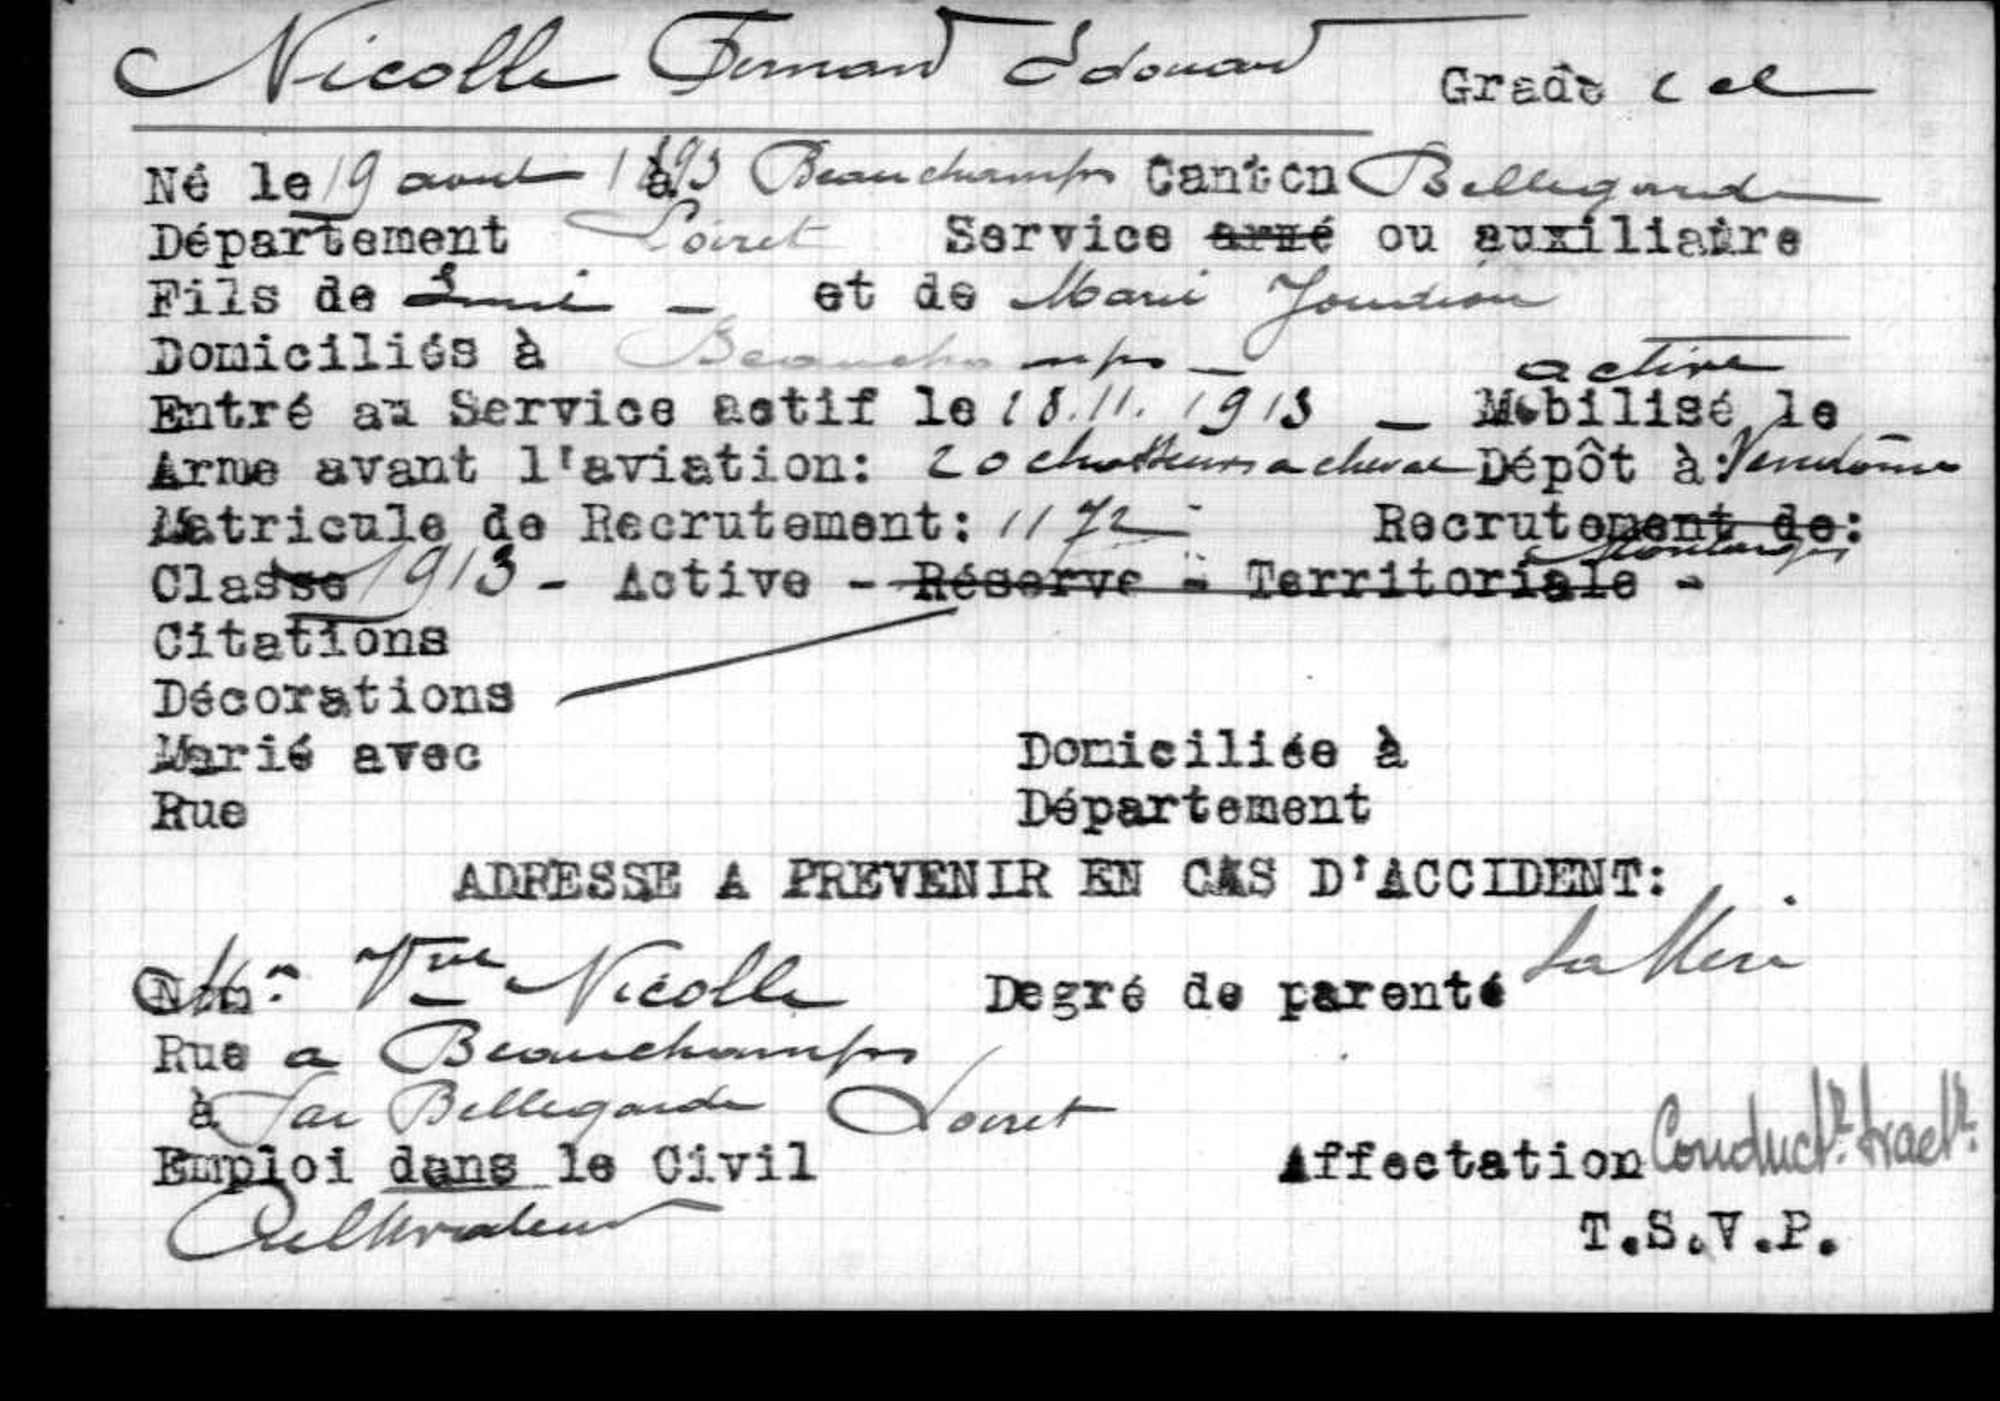 Nicolle Fernand Edouard Grade 2 cl
Né le 19 aout 1893 à Beauchamps Canton Bellegarde
Département Loiret Service armé ou auxiliaire
Fils de et de Marie
Domiciliés à Beauchamps - active
Entré au Service actif le 28.11.1913 - Mobilisé le
Arme avant l'aviation: 20 chasseurs a cheval Dépôt à: Vendôme
Matricule de Recrutement: 1172 - Recrutement de:
Montargis
Classe 1913 - Active - Réserve - Territoriale -
Citations
Décorations
Marié avec Domiciliée à
Rue Département
ADRESSE A PREVENIR EN CAS D'ACCIDENT:
Nom: Vve Nicolle Degré de parenté Sa Mère
Rue a Beauchamps
à Par Bellegarde Loiret
Emploi dans le Civil Affectation Conduct.r tract.r
Cultivateur T.S.V.P.